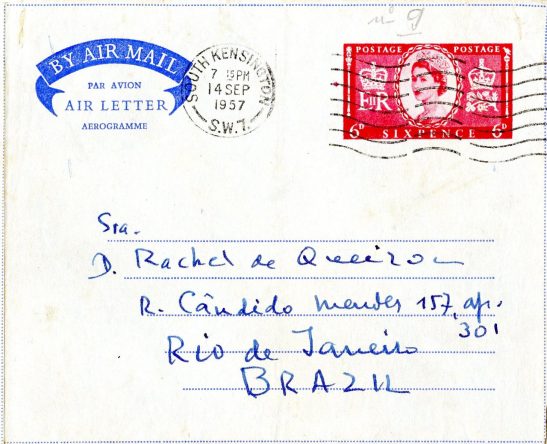 nº 9
BY AIR MAIL
PAR AVION
AIR LETTER
AEROGRAMME
SOUTH KENSINGTON
7 15PM
14 SEP
1957
S.W.7.
POSTAGE POSTAGE
E II R
SIXPENCE
6D 6D
Sra.
D. Rachel de Queiroz
R. Cândido Mendes 157, ap.
301
Rio de Janeiro
BRAZIL